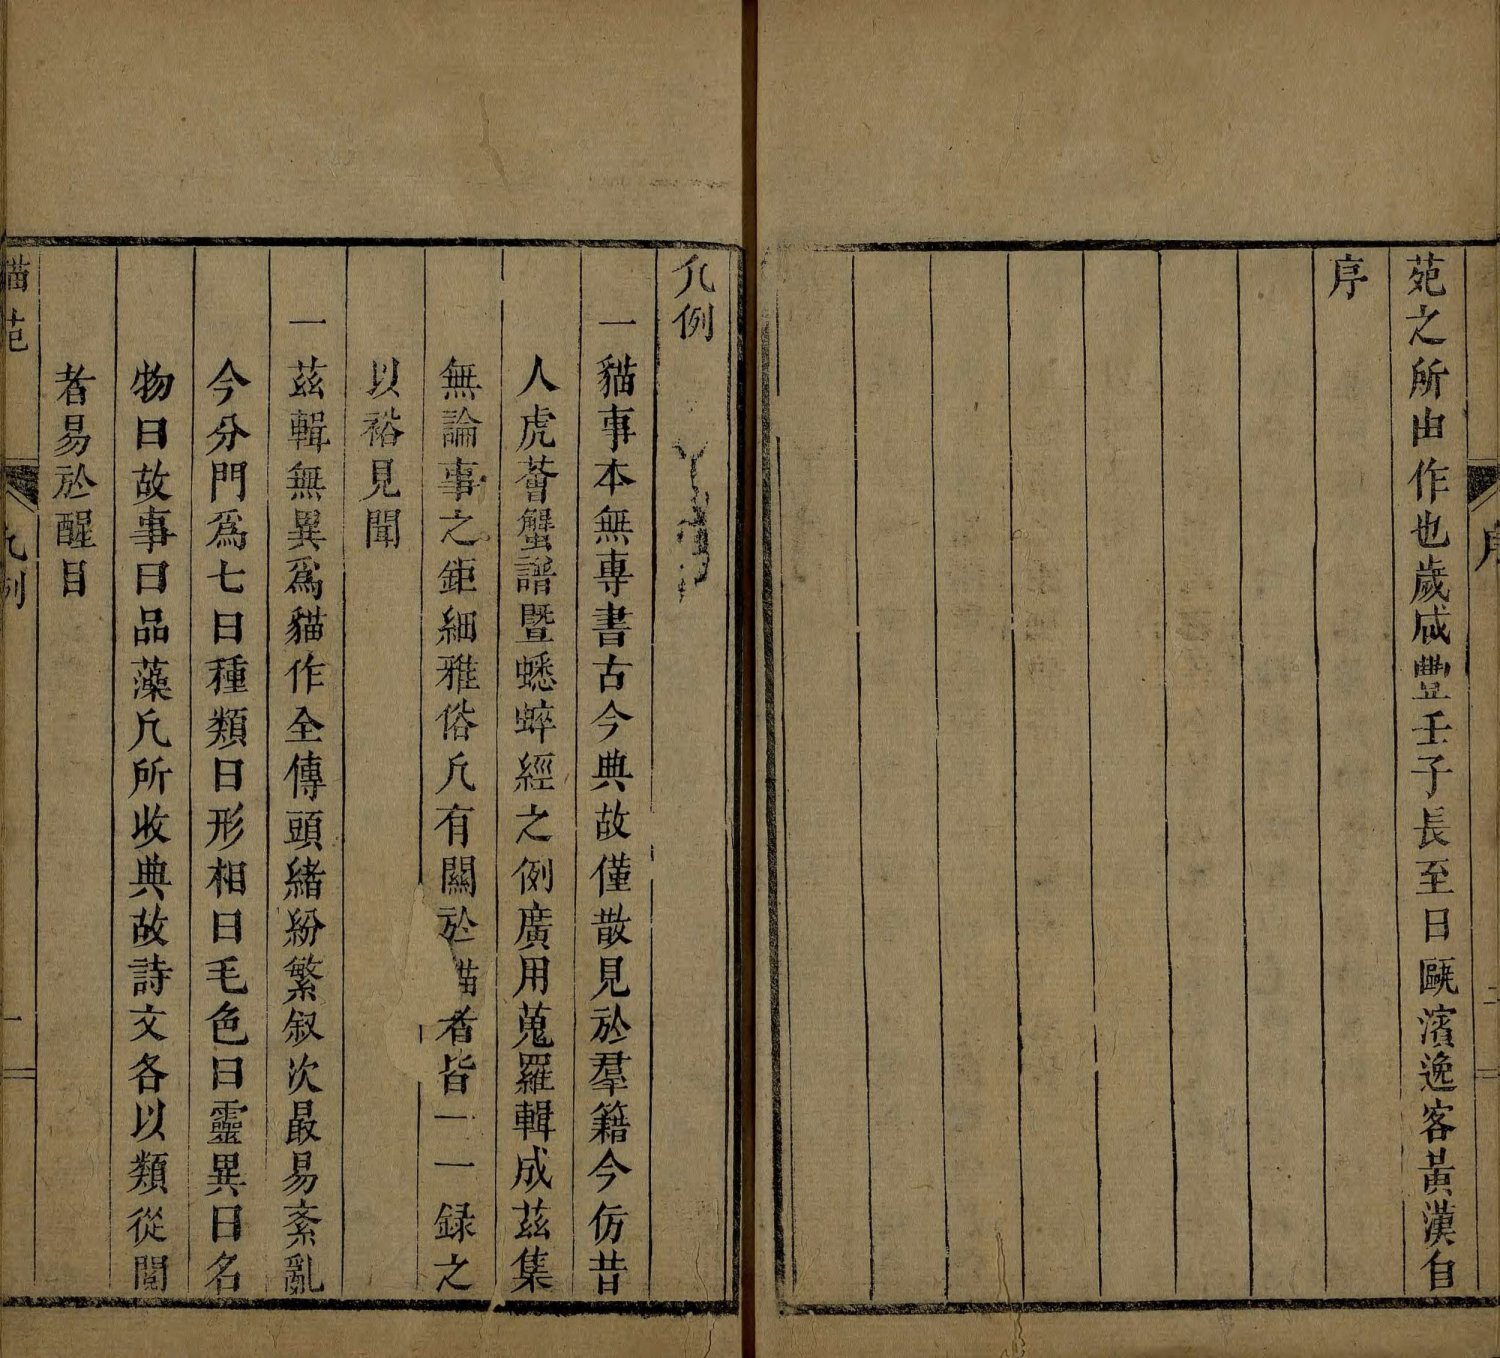 苑之所由作也歲咸豐壬子長至日甌濱逸客黃漢自
序
凡例
一貓事本無專書古今典故僅散見於羣籍今仿昔
人虎薈蟹譜暨蟋蟀經之例廣用蒐羅輯成茲集
無論事之鉅細雅俗凡有關於貓者皆一一録之
以裕見聞
一茲輯無異爲貓作全傳頭緒紛繁叙次最易紊亂
今分門爲七曰種類曰形相曰毛色曰靈異曰名
物曰故事曰品藻凡所收典故詩文各以類從閱
者易於醒目
貓苑
凡例
一